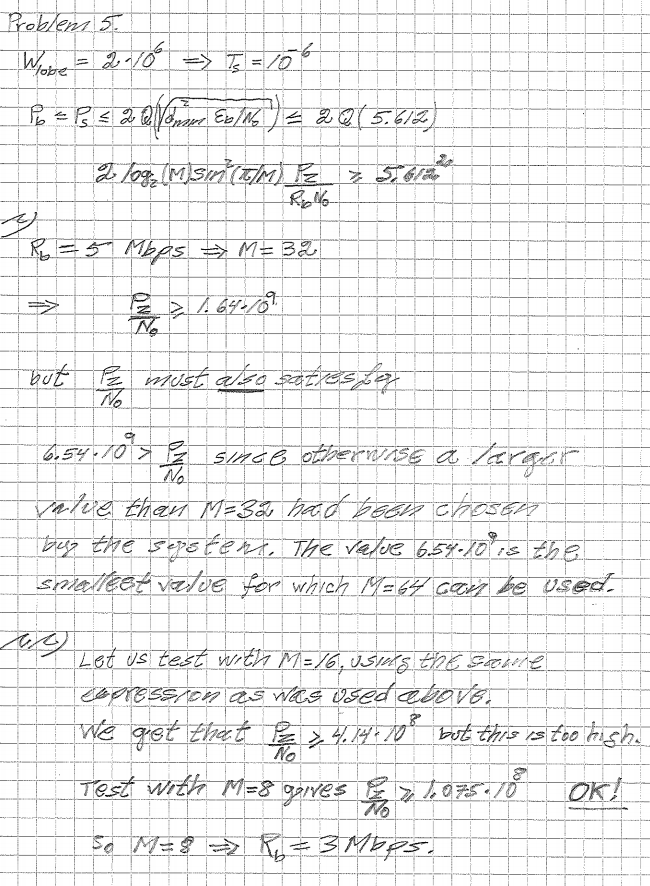 Problem 5.
W_lobe = 2·10^6 ⇒ T_s = 10^-6
P_b ≤ P_s ≤ 2Q(√(d²_min E_b/N_0)) ≤ 2Q(5.612)
2 log_2(M) sin²(π/M) P_z/(R_b N_0) ≥ 5.612²
i)
R_b = 5 Mbps ⇒ M = 32
⇒ P_z/N_0 ≥ 1.64·10^9
but P_z/N_0 must also satisfy
6.54·10^9 > P_z/N_0 since otherwise a larger
value than M=32 had been chosen
by the system. The value 6.54·10^9 is the
smallest value for which M=64 can be used.
ii)
Let us test with M=16, using the same
expression as was used above.
We get that P_z/N_0 ≥ 4.14·10^8 but this is too high.
Test with M=8 gives P_z/N_0 ≥ 1.075·10^8 OK!
So M=8 ⇒ R_b = 3 Mbps.